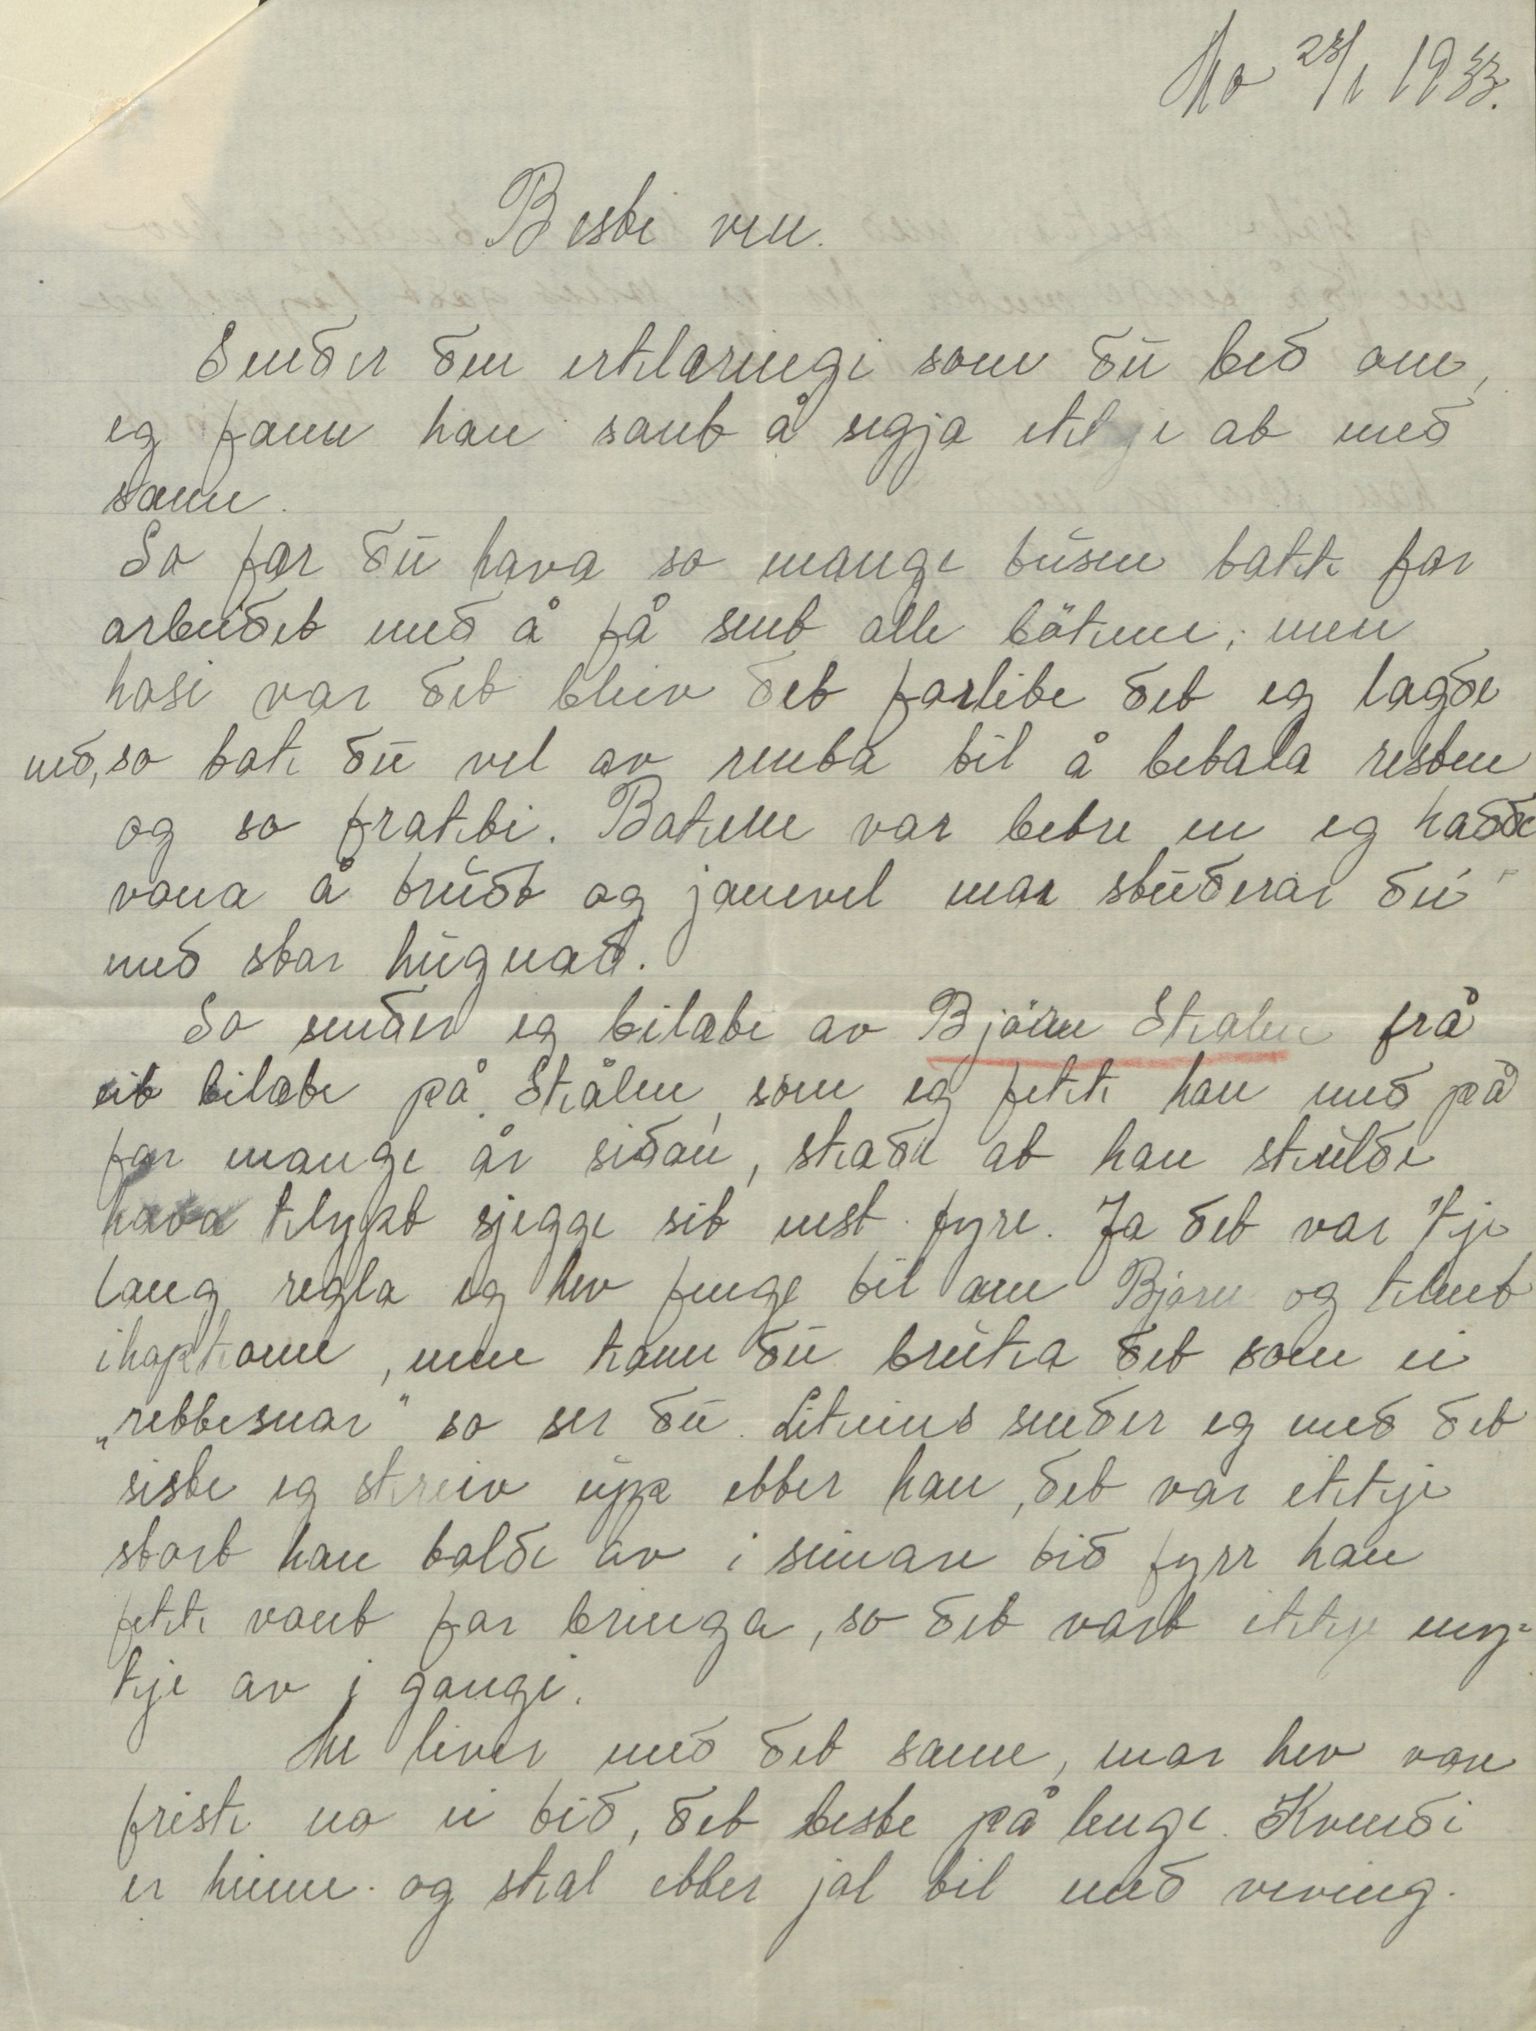 Mo 28/1 1933.
Beste ven.
Sender den erklæringi som du bed om,
eg fann han sant å segja ikkje at med
same.
So får du hava so mange tusen takk for
arbeidet med å få sent alle bökene, men
hosi var det bleiv det forlite det eg lagde
med, so tak du vel av renta til å betala resten
og so frakti. Bökene var betre en eg hadde
vona å trudt og jamvel mor studerar du
med stor hugnad.
So sender eg bilæte av Björn Skalen frå
eit bilæte på Skålen, som eg fekk han med på
for mange år sidan, skada at han skulde
hava klypt sjegge sit nest fyre. Ja det var kje
lang regla eg hev fenge til om Bjørn og klent
ihopkome, men kann du bruka det som ei
„rettesnor" so ser du. Likeins sender eg med det
siste eg skreiv upp etter han, det var ikkje
stort han tolde av i seinare tid fyrr han
fekk vont for bringa, so det vart ikkje my-
kje av i gongi.
Me liver med det same, mor hev vore
frisk no ei tid, det beste på lenge. Kvendi
er heime og skal etter jol til med veving.